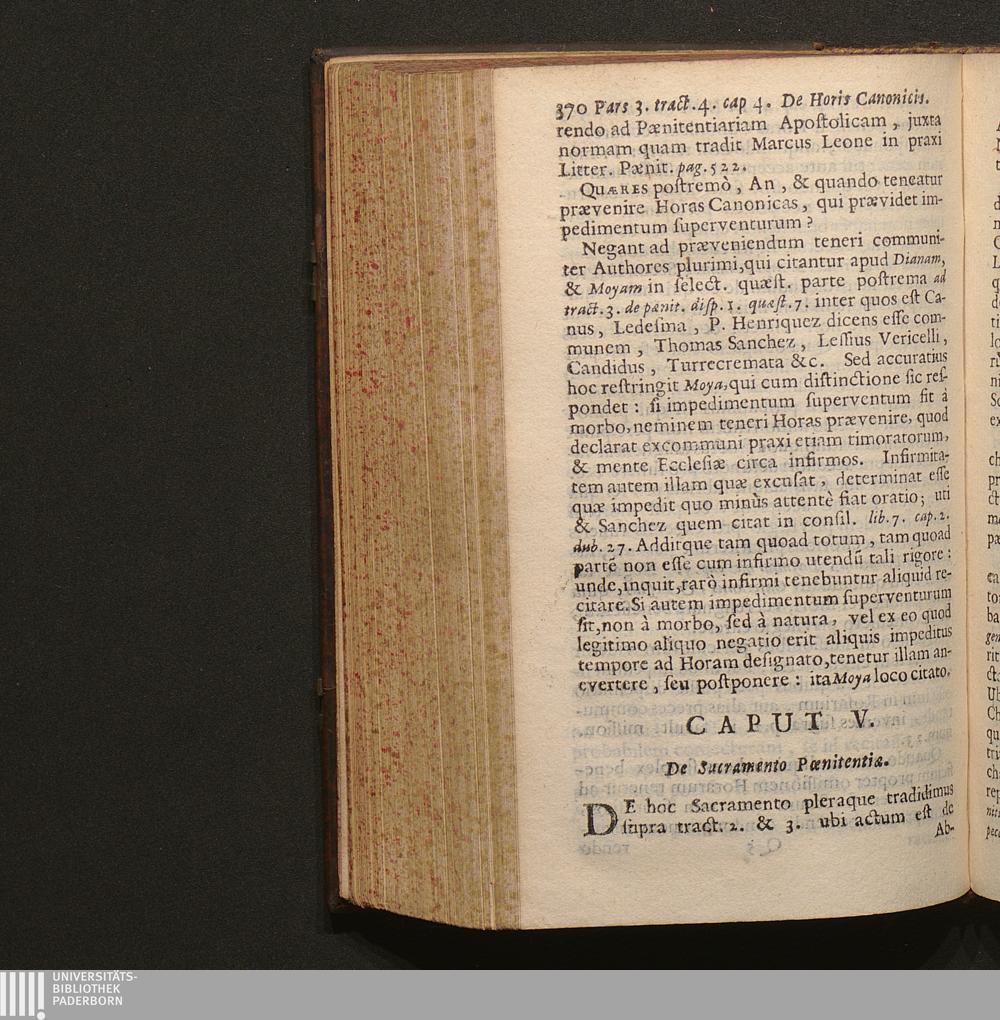 370 Pars 3. tract. 4. cap 4. De Horis Canonicis.
rendo ad Pænitentiariam Apoſtolicam, juxta
normam quam tradit Marcus Leone in praxi
Litter. Pænit. pag. 522.
QUÆRES poſtremò, An, & quando teneatur
prævenire Horas Canonicas, qui prævidet im-
pedimentum ſuperventurum?
Negant ad præveniendum teneri communi-
ter Authores plurimi, qui citantur apud Dianam,
& Moyam in ſelect. quæſt. parte poſtrema ad
tract. 3. de pænit. diſp. 1. quæſt. 7. inter quos eſt Ca-
nus, Ledeſma, P. Henriquez dicens eſſe com-
munem, Thomas Sanchez, Leſſius Vericelli,
Candidus, Turrecremata &c. Sed accuratius
hoc reſtringit Moya, qui cum diſtinctione ſic reſ-
pondet: ſi impedimentum ſuperventum ſit à
morbo, neminem teneri Horas prævenire, quod
declarat excommuni praxi etiam timoratorum,
& mente Eccleſiæ circa infirmos. Infirmita-
tem autem illam quæ excuſat, determinat eſſe
quæ impedit quo minùs attentè fiat oratio; uti
& Sanchez quem citat in conſil. lib. 7. cap. 2.
dub. 27. Additque tam quoad totum, tam quoad
partē non eſſe cum infirmo utendū tali rigore:
unde, inquit, rarò infirmi tenebuntur aliquid re-
citare. Si autem impedimentum ſuperventurum
ſit, non à morbo, ſed à natura, vel ex eo quod
legitimo aliquo negatio erit aliquis impeditus
tempore ad Horam deſignato, tenetur illam an-
evertere, ſeu poſtponere: ita Moya loco citato.
CAPUT V.
De Sacramento Pœnitentiæ.
DE hoc Sacramento pleraque tradidimus
ſupra tract. 2. & 3. ubi actum eſt de
Ab-
UNIVERSITÄTS-
BIBLIOTHEK
PADERBORN